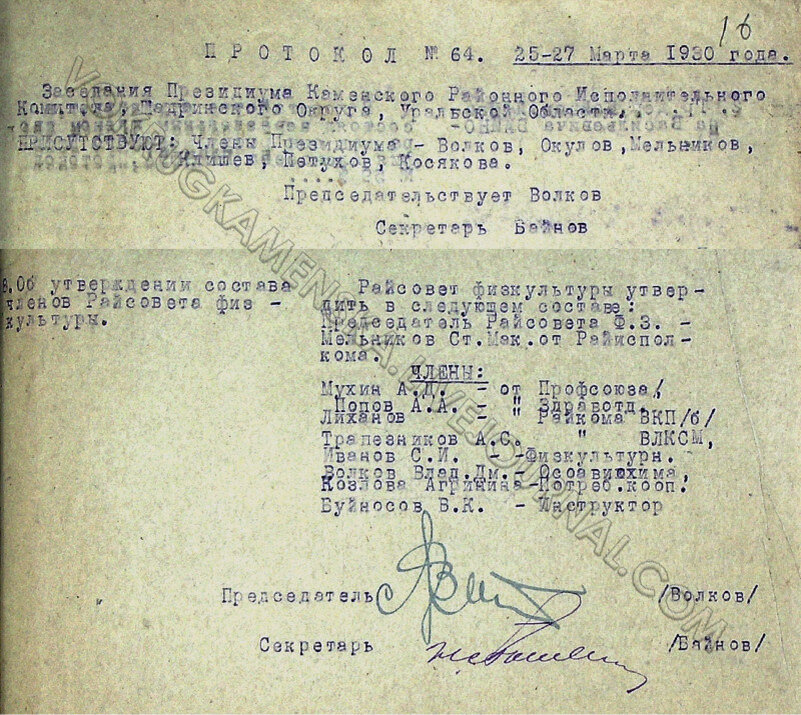 16
ПРОТОКОЛ № 64. 25-27 Марта 1930 года.
Заседания Президиума Каменского Районного Исполнительного
Комитета, Шадринского Округа, Уральской Области.
ПРИСУТСТВУЮТ: Члены Президиума - Волков, Окулов, Мельников,
Клишев, Петухов, Косякова.
Председательствует Волков
Секретарь Байнов
8. Об утверждении состава
членов Райсовета физ -
культуры.
Райсовет физкультуры утвер-
дить в следующем составе:
Председатель Райсовета Ф.З. -
Мельников Ст.Мак. от Райиспол-
кома.
ЧЛЕНЫ:
Мухин А.Д. - от Профсоюза,
Попов А.А. - " Здравотд.
Лиханов - " Райкома ВКП/б/
Трапезников А.С. " ВЛКСМ,
Иванов С.И. - -Физкультурн.
Волков Влад.Дм.- Осоавиахима,
Козлова Агрипина-Потреб.кооп.
Буйносов Б.К. - Инструктор
Председатель /Волков/
Секретарь /Байнов/